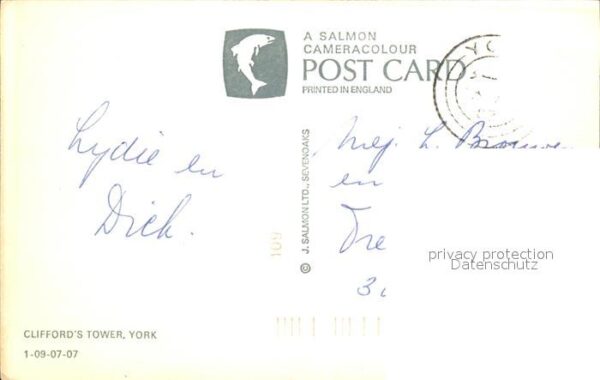 A SALMON
CAMERACOLOUR
POST CARD
PRINTED IN ENGLAND
Lydie en
Dick.
109
© J. SALMON LTD., SEVENOAKS
Mej. L.
en
privacy protection
Datenschutz
CLIFFORD'S TOWER, YORK
1-09-07-07